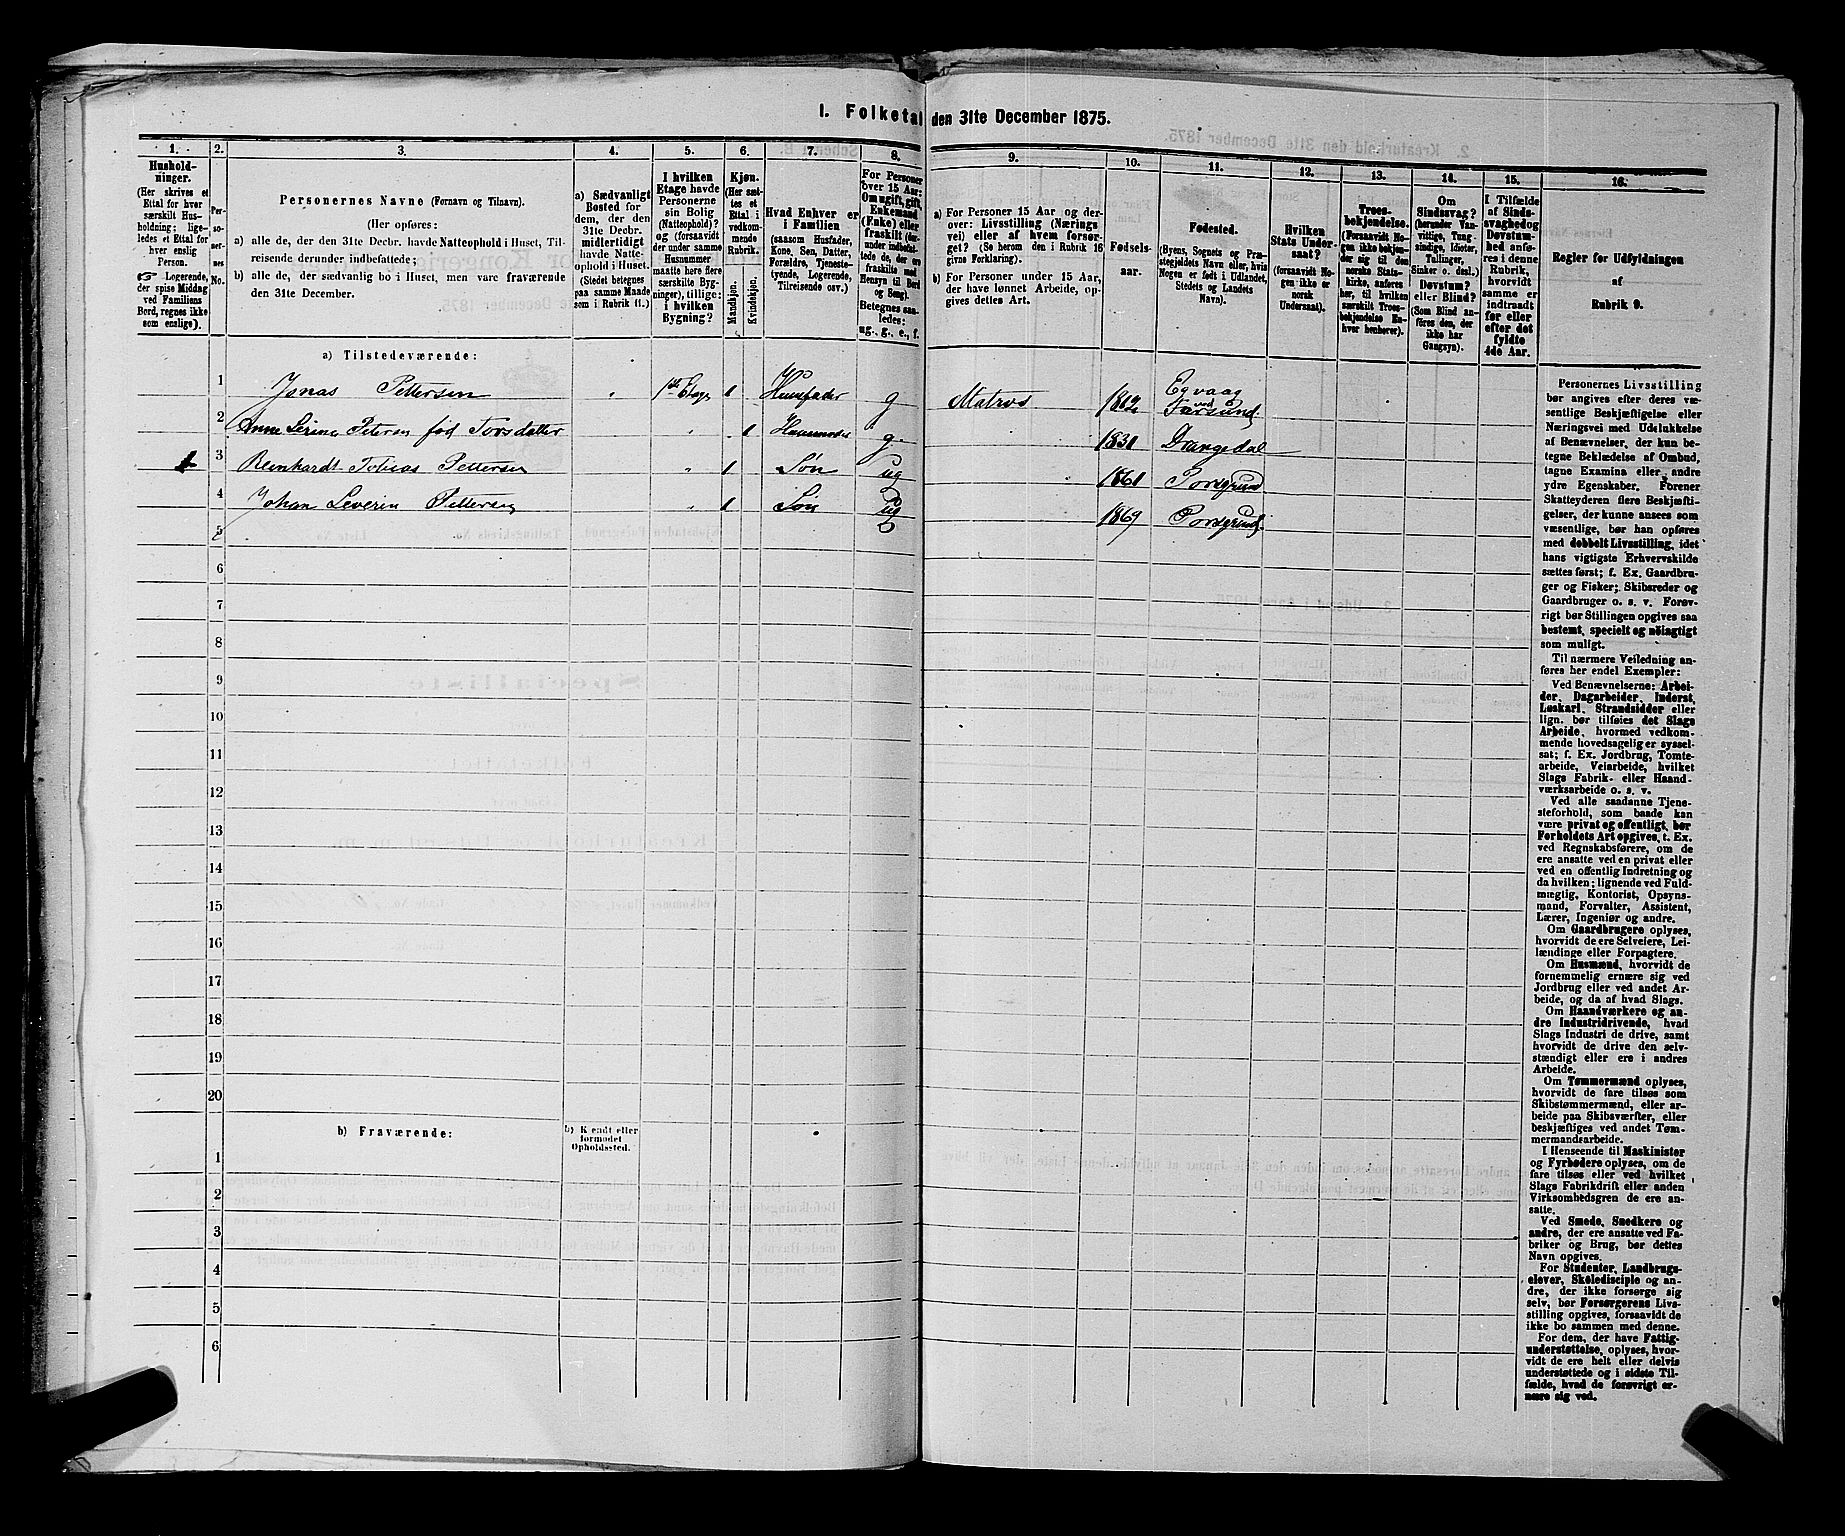 I. Folketal den 31te December 1875.
1.
Hushold-
ninger.
(Her skrives et
Ettal for hver
særskilt Hus-
holdning; lige-
ledes et Ettal for
hver enslig
Person.
☞ Logerende,
der spise Middag
ved Familiens
Bord, regnes ikke
som enslige).
2.
Per-
so-
ner-
nes
No.
3.
Personernes Navne (Fornavn og Tilnavn).
(Her opføres:
a) alle de, der den 31te Decbr. havde Natteophold i Huset, Til-
reisende derunder indbefattede;
b) alle de, der sædvanlig bo i Huset, men vare fraværende
den 31te December.
4.
a) Sædvanligt
Bosted for
dem, der den
31te Decbr.
midlertidigt
havde Natte-
ophold i Huset.
(Stedet betegnes
paa samme Maade
som i Rubrik 11.)
5.
I hvilken
Etage havde
Personerne
sin Bolig
(Natteophold)?
og (forsaavidt
der under samme
Husnummer
maatte høre flere
særskilte Byg-
ninger), tillige:
i hvilken
Bygning?
6.
Kjøn.
(Her sæt-
tes et
Ettal i
vedkom-
mende
Rubrik.)
Mandkjøn.
Kvindekjøn.
7.
Hvad Enhver er
i Familien
(saasom Husfader,
Kone, Søn, Datter,
Forældre, Tjeneste-
tyende, Logerende,
Tilreisende osv.)
8.
For Personer
over 15 Aar:
Om ugift, gift,
Enkemand
(Enke) eller
fraskilt (der-
under indbefat-
tede de, der ere
fraskilte med
Hensyn til Bord
og Seng).
Betegnes saa-
ledes:
ug., g., e., f.
9.
a) For Personer 15 Aar og der-
over: Livsstilling (Nærings-
vei) eller af hvem forsør-
get? (Se herom den i Rubrik 16
givne Forklaring).
b) For Personer under 15 Aar,
der have lønnet Arbeide, op-
gives dettes Art.
10.
Fødsels-
aar.
11.
Fødested.
(Byens, Sognets og Præ-
stegjeldets Navn eller, hvis
Nogen er født i Udlandet,
Stedets og Landets
Navn).
12.
Hvilken
Stats Under-
saat?
(forsaavidt No-
gen ikke er
norsk
Undersaat).
13.
Troes-
bekjendelse.
(Forsaavidt No-
gen ikke beken-
der sig til den
norske Stats-
kirke, anføres
her, til hvilken
særskilt Troes-
bekjendelse En-
hver henhører).
14.
Om
Sindssvag?
(herunder Van-
vittige, Tung-
sindige, Idioter,
Tullinger,
Sinker o. desl.)
Døvstum?
eller Blind?
(Som Blind an-
føres den, der
ikke har
Gangsyn).
15.
I Tilfælde
af Sinds-
svaghed og
Døvstum-
hed anfø-
res i denne
Rubrik,
hvorvidt
samme er
indtraadt
før eller
efter det
fyldte
4de Aar.
16.
Regler for Udfyldningen
af
Rubrik 9.
a) Tilstedeværende:
1 Jonas Pettersen " 1ste Etage 1 Huusfader g Matros 1812 Egvaag ved Farsund
2 Anne Serine Petersen fød Torsdatter " 1 Huusmoder g. 1831 Drangedal
1 3 Reinhardt Tobias Pettersen " 1 Søn ug 1861 Porsgrund
4 Johan Severin Pettersen 1 Søn ug 1869 Porsgrund.
5
6
7
8
9
10
11
12
13
14
15
16
17
18
19
20
b) Fraværende:
b) Kjendt eller
formodet
Opholdssted.
1
2
3
4
5
6
Personernes Livsstilling
bør angives efter deres væ-
sentlige Beskjæftigelse eller
Næringsvei med Udelukkelse
af Benævnelser, der kun be-
tegne Beklædelse af Ombud,
tagne Examina eller andre
ydre Egenskaber. Forener
Skatteyderen flere Beskjæfti-
gelser, der kunne ansees som
væsentlige, bør han opføres
med dobbelt Livsstilling, idet
hans vigtigste Erhvervskilde
sættes først; f. Ex. Gaardbru-
ger og Fisker; Skibsreder og
Gaardbruger o. s. v. Forøv-
rigt bør Stillingen opgives saa
bestemt, specielt og nøiagtigt
som muligt.
Til nærmere Veiledning an-
føres her endel Exempler:
Ved Benævnelserne: Arbei-
der, Dagarbeider, Inderst,
Løskarl, Strandsidder eller
lign. bør tilføies det Slags
Arbeide, hvormed vedkom-
mende hovedsagelig er syssel-
sat; f. Ex. Jordbrug, Tomte-
arbeide, Veiarbeide, hvilket
Slags Fabrik- eller Haand-
værksarbeide o. s. v.
Ved alle saadanne Tjene-
steforhold, som baade kan
være privat og offentligt, bør
Forholdets Art opgives, t. Ex.
ved Regnskabsførere, om de
ere ansatte ved en privat eller
ved en offentlig Indretning og
da hvilken; lignende ved Fuld-
mægtig, Kontorist, Opsyns-
mand, Forvalter, Assistent,
Lærer, Ingeniør og andre.
Om Gaardbrugere oplyses,
hvorvidt de ere Selveiere, Lei-
lændinge eller Forpagtere.
Om Husmænd, hvorvidt de
fornemmelig ernære sig ved
Jordbrug eller ved andet Ar-
beide, og da af hvad Slags.
Om Haandværkere og an-
dre Industridrivende, hvad
Slags Industri de drive, samt
hvorvidt de drive den selv-
stændigt eller ere i andres
Arbeide.
Om Tømmermænd oplyses,
hvorvidt de fare tilsøs som
Skibstømmermænd, eller ar-
beide paa Skibsværfter, eller
beskjæftiges ved andet Tøm-
mermandsarbeide.
I Henseende til Maskinister
og Fyrbødere oplyses, om de
fare tilsøs eller ved hvilket
Slags Fabrikdrift eller anden
Virksomhedsgren de ere an-
satte.
Ved Smede, Snedkere og
andre, der ere ansatte ved Fa-
briker og Brug, bør dettes
Navn opgives.
For Studenter, Landbrugs-
elever, Skoledisciple og an-
dre, der ikke forsørge sig
selv, bør Forsørgerens Livs-
stilling opgives, forsaavidt de
ikke bo sammen med denne.
For dem, der have Fattig-
understøttelse, oplyses, hvor-
vidt de ere helt eller delvis
understøttede og i sidste Til-
fælde, hvad de forøvrigt er-
nære sig ved.